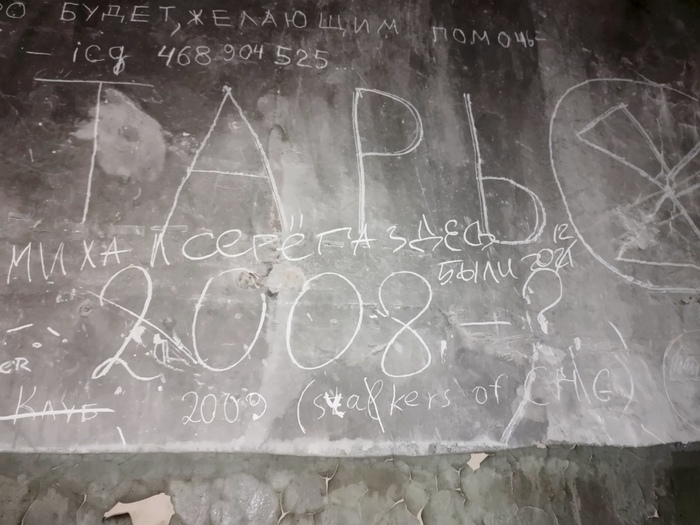 БУДЕТ, ЖЕЛАЮЩИМ ПОМОЧЬ
– icq 468904525...
ТАРЬ
МИХА И СЕРЁГА ЗДЕСЬ
БЫЛИ 12 2021
2008 – ?
ER
Клуб 2009 (stalkers of CHG)